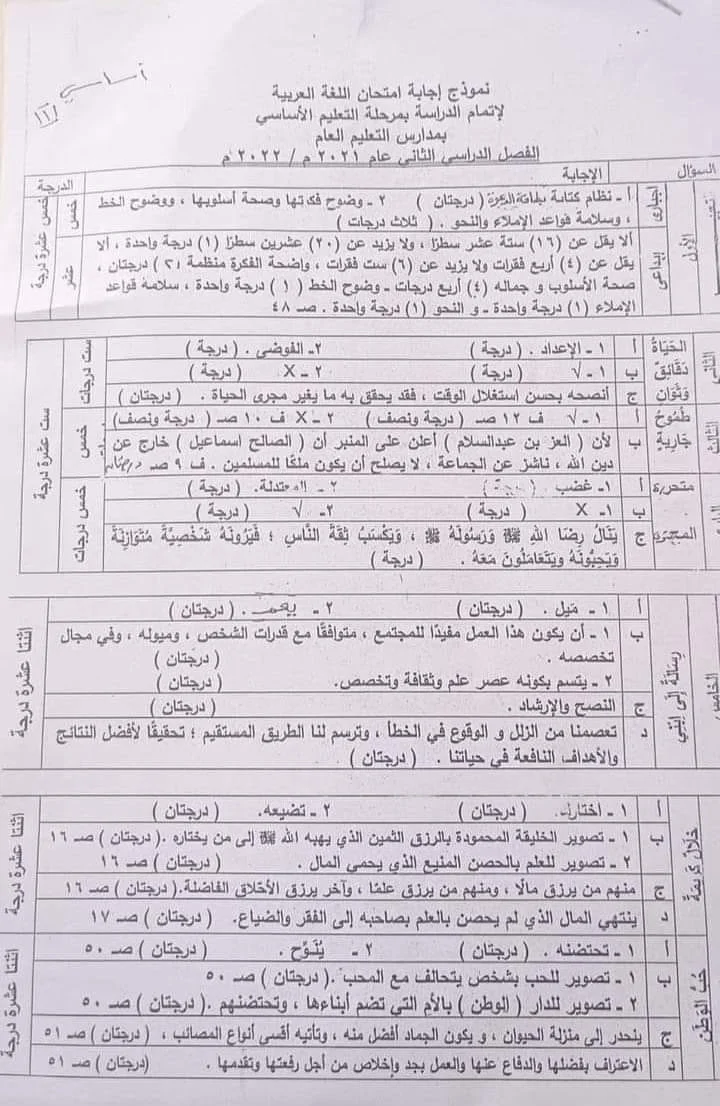 أساسي
(١٢)
نموذج إجابة امتحان اللغة العربية
لإتمام الدراسة بمرحلة التعليم الأساسي
بمدارس التعليم العام
الفصل الدراسي الثاني عام ٢٠٢١ م / ٢٠٢٢ م
السؤال الإجابة الدرجة
الأول إجباري أ - نظام كتابة بطاقة الدعوة ( درجتان ) ٢ - وضوح فكرتها وصحة أسلوبها ، ووضوح الخط خمس خمس عشرة درجة
، وسلامة قواعد الإملاء والنحو . ( ثلاث درجات )
إبداعي ألا يقل عن (١٦) ستة عشر سطرًا ، ولا يزيد عن (٢٠) عشرين سطرًا (١) درجة واحدة ، ألا عشر
يقل عن (٤) أربع فقرات ولا يزيد عن (٦) ست فقرات ، واضحة الفكرة منظمة (٢) درجتان ،
صحة الأسلوب و جماله (٤) أربع درجات - وضوح الخط ( ١ ) درجة واحدة ، سلامة قواعد
الإملاء (١) درجة واحدة - و النحو (١) درجة واحدة . صـ ٤٨
الثاني الحَيَاةُ أ ١ - الإعداد . ( درجة ) ٢- الفوضى . ( درجة ) ست درجات
دَقَائِقُ ب ١ - √ ( درجة ) ٢ - X ( درجة )
وَثَوَانٍ ج أنصحه بحسن استغلال الوقت ، فقد يحقق به ما يغير مجرى الحياة . ( درجتان )
الثالث طَمُوحُ أ ١ - √ ف ١٢ صـ ( درجة ونصف ) ٢ - X ف ١٠ صـ ( درجة ونصف) خمس ست عشرة درجة
جَارِيَةٍ ب لأن ( العز بن عبدالسلام ) أعلن على المنبر أن ( الصالح اسماعيل ) خارج عن
دين الله ، ناشز عن الجماعة ، لا يصلح أن يكون ملكًا للمسلمين . ف ٩ صـ درجتان
أ ١- غضب ( درجة ) ٢ - المعتدلة . ( درجة ) خمس درجات
ب ١- X ( درجة ) ٢- √ ( درجة )
ج يَنَالُ رِضَا اللهِ ﷻ وَرَسُولَهُ ﷺ ، وَيَكْسَبُ ثِقَةَ النَّاسِ ؛ فَيَرَوْنَهُ شَخْصِيَّةً مُتَوَازِنَةً
وَيُحِبُّونَهُ وَيَتَعَامَلُونَ مَعَهُ . ( درجة )
الخامس رِسَالَةٌ إِلَى ابْنَتِي أ ١ - مَيل . ( درجتان ) ٢ - . ( درجتان ) اثنتا عشرة درجة
ب ١ - أن يكون هذا العمل مفيدًا للمجتمع ، متوافقًا مع قدرات الشخص ، وميوله ، وفي مجال
تخصصه . ( درجتان )
٢ - يتسم بكونه عصر علم وثقافة وتخصص. ( درجتان )
ج النصح والإرشاد . ( درجتان )
د تعصمنا من الزلل و الوقوع في الخطأ ، وترسم لنا الطريق المستقيم ؛ تحقيقًا لأفضل النتائج
والأهداف النافعة في حياتنا . ( درجتان )
خِلَالٌ كَرِيمَةٌ أ ١ - اختارك. ( درجتان ) ٢ - تضيعه. ( درجتان ) اثنتا عشرة درجة
ب ١ - تصوير الخليقة المحمودة بالرزق الثمين الذي يهبه الله ﷻ إلى من يختاره .( درجتان ) صـ ١٦
٢ - تصوير للعلم بالحصن المنيع الذي يحمى المال . ( درجتان ) صـ ١٦
ج منهم من يرزق مالًا ، ومنهم من يرزق علمًا ، وآخر يرزق الأخلاق الفاضلة.( درجتان ) صـ ١٦
د ينتهي المال الذي لم يحصن بالعلم بصاحبه إلى الفقر والضياع. ( درجتان ) صـ ١٧
حُبُّ الوَطَنِ أ ١ - تحتضنه . ( درجتان ) ٢ - يُنَوَّح . ( درجتان ) صـ ٥٠ اثنتا عشرة درجة
ب ١ - تصوير للحب بشخص يتحالف مع المحب .( درجتان ) صـ ٥٠
٢ - تصوير للدار ( الوطن ) بالأم التي تضم أبناءها ، وتحتضنهم .( درجتان ) صـ ٥٠
ج ينحدر إلى منزلة الحيوان ، و يكون الجماد أفضل منه ، وتأتيه أقسى أنواع المصائب . ( درجتان ) صـ ٥١
د الاعتراف بفضلها والدفاع عنها والعمل بجد وإخلاص من أجل رفعتها وتقدمها . (درجتان ) صـ ٥١